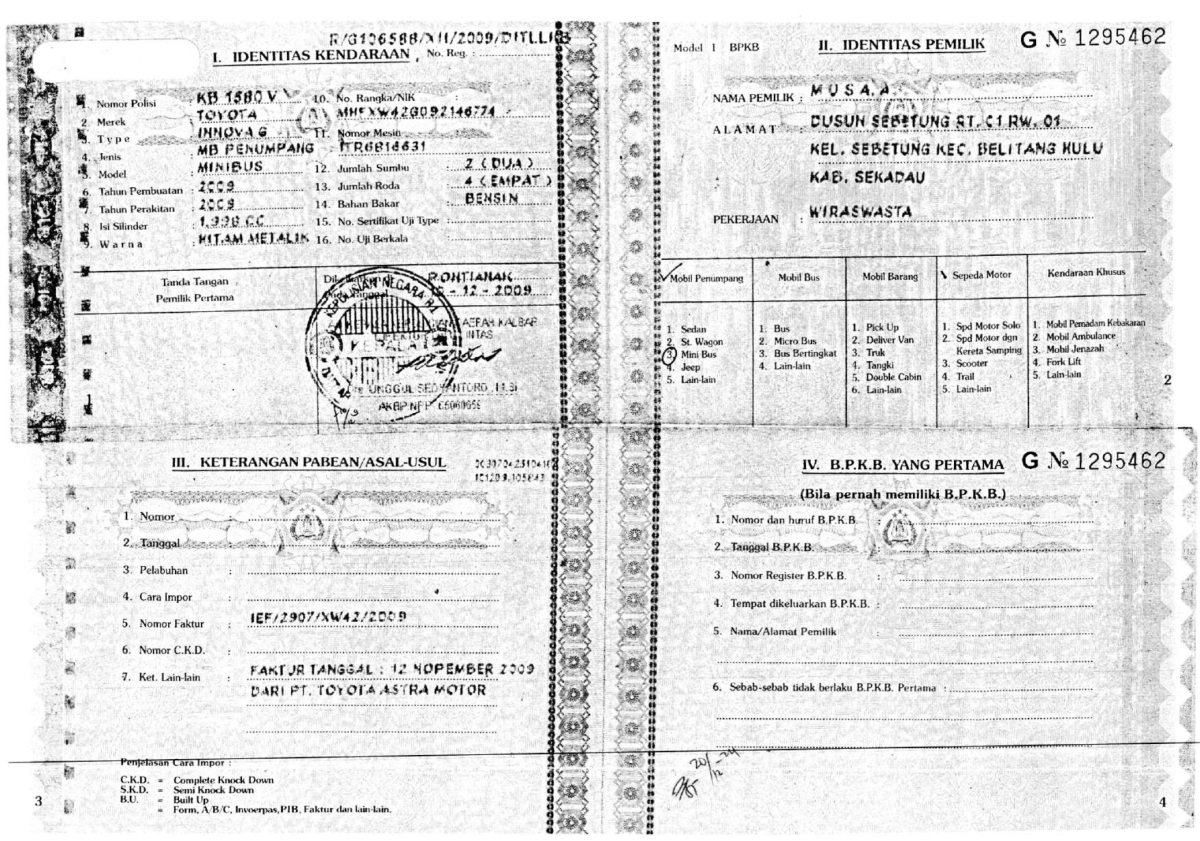 R/6106588/XII/2009/DITLLKB
I. IDENTITAS KENDARAAN, No. Reg. :
1. Nomor Polisi : KB 1580 V
2. Merek : TOYOTA
3. Type : INNOVA G
4. Jenis : MB PENUMPANG
5. Model : MINIBUS
6. Tahun Pembuatan : 2009
7. Tahun Perakitan : 2009
8. Isi Silinder : 1.998 CC
9. Warna : HITAM METALIK
10. No. Rangka/NIK : MHFXW42G092146774
11. Nomor Mesin : 1TR6814631
12. Jumlah Sumbu : 2 (DUA)
13. Jumlah Roda : 4 (EMPAT)
14. Bahan Bakar : BENSIN
15. No. Sertifikat Uji Type :
16. No. Uji Berkala :
Tanda Tangan
Pemilik Pertama
Dikeluarkan di PONTIANAK
- 12 - 2009
KEPOLISIAN NEGARA R.I.
DAERAH KALBAR
KEPALA
UNGGUL SEDYANTORO
AKBP NRP
1
Model 1 BPKB
II. IDENTITAS PEMILIK
G № 1295462
NAMA PEMILIK : MUSA.A
ALAMAT : DUSUN SEBETUNG RT. 01 RW. 01
KEL. SEBETUNG KEC. BELITANG HULU
KAB. SEKADAU
PEKERJAAN : WIRASWASTA
Mobil Penumpang
1. Sedan
2. St. Wagon
3. Mini Bus
4. Jeep
5. Lain-lain
Mobil Bus
1. Bus
2. Micro Bus
3. Bus Bertingkat
4. Lain-lain
Mobil Barang
1. Pick Up
2. Deliver Van
3. Truk
4. Tangki
5. Double Cabin
6. Lain-lain
Sepeda Motor
1. Spd Motor Solo
2. Spd Motor dgn
Kereta Samping
3. Scooter
4. Trail
5. Lain-lain
Kendaraan Khusus
1. Mobil Pemadam Kebakaran
2. Mobil Ambulance
3. Mobil Jenazah
4. Fork Lift
5. Lain-lain
2
III. KETERANGAN PABEAN/ASAL-USUL
1. Nomor :
2. Tanggal :
3. Pelabuhan :
4. Cara Impor :
5. Nomor Faktur : IEF/2907/XW42/2009
6. Nomor C.K.D. :
7. Ket. Lain-lain : FAKTUR TANGGAL : 12 NOPEMBER 2009
DARI PT. TOYOTA ASTRA MOTOR
Penjelasan Cara Impor :
C.K.D. = Complete Knock Down
S.K.D. = Semi Knock Down
B.U. = Built Up
= Form, A/B/C, Invoerpas,PIB, Faktur dan lain-lain.
3
IV. B.P.K.B. YANG PERTAMA
G № 1295462
(Bila pernah memiliki B.P.K.B.)
1. Nomor dan huruf B.P.K.B. :
2. Tanggal B.P.K.B. :
3. Nomor Register B.P.K.B. :
4. Tempat dikeluarkan B.P.K.B. :
5. Nama/Alamat Pemilik :
6. Sebab-sebab tidak berlaku B.P.K.B. Pertama :
4